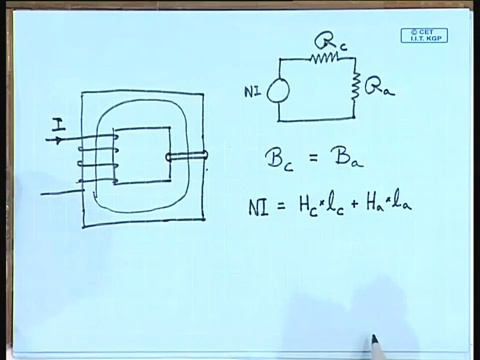 © CET
I.I.T. KGP
R_c
NI
R_a
I
B_c = B_a
NI = H_c * l_c + H_a * l_a